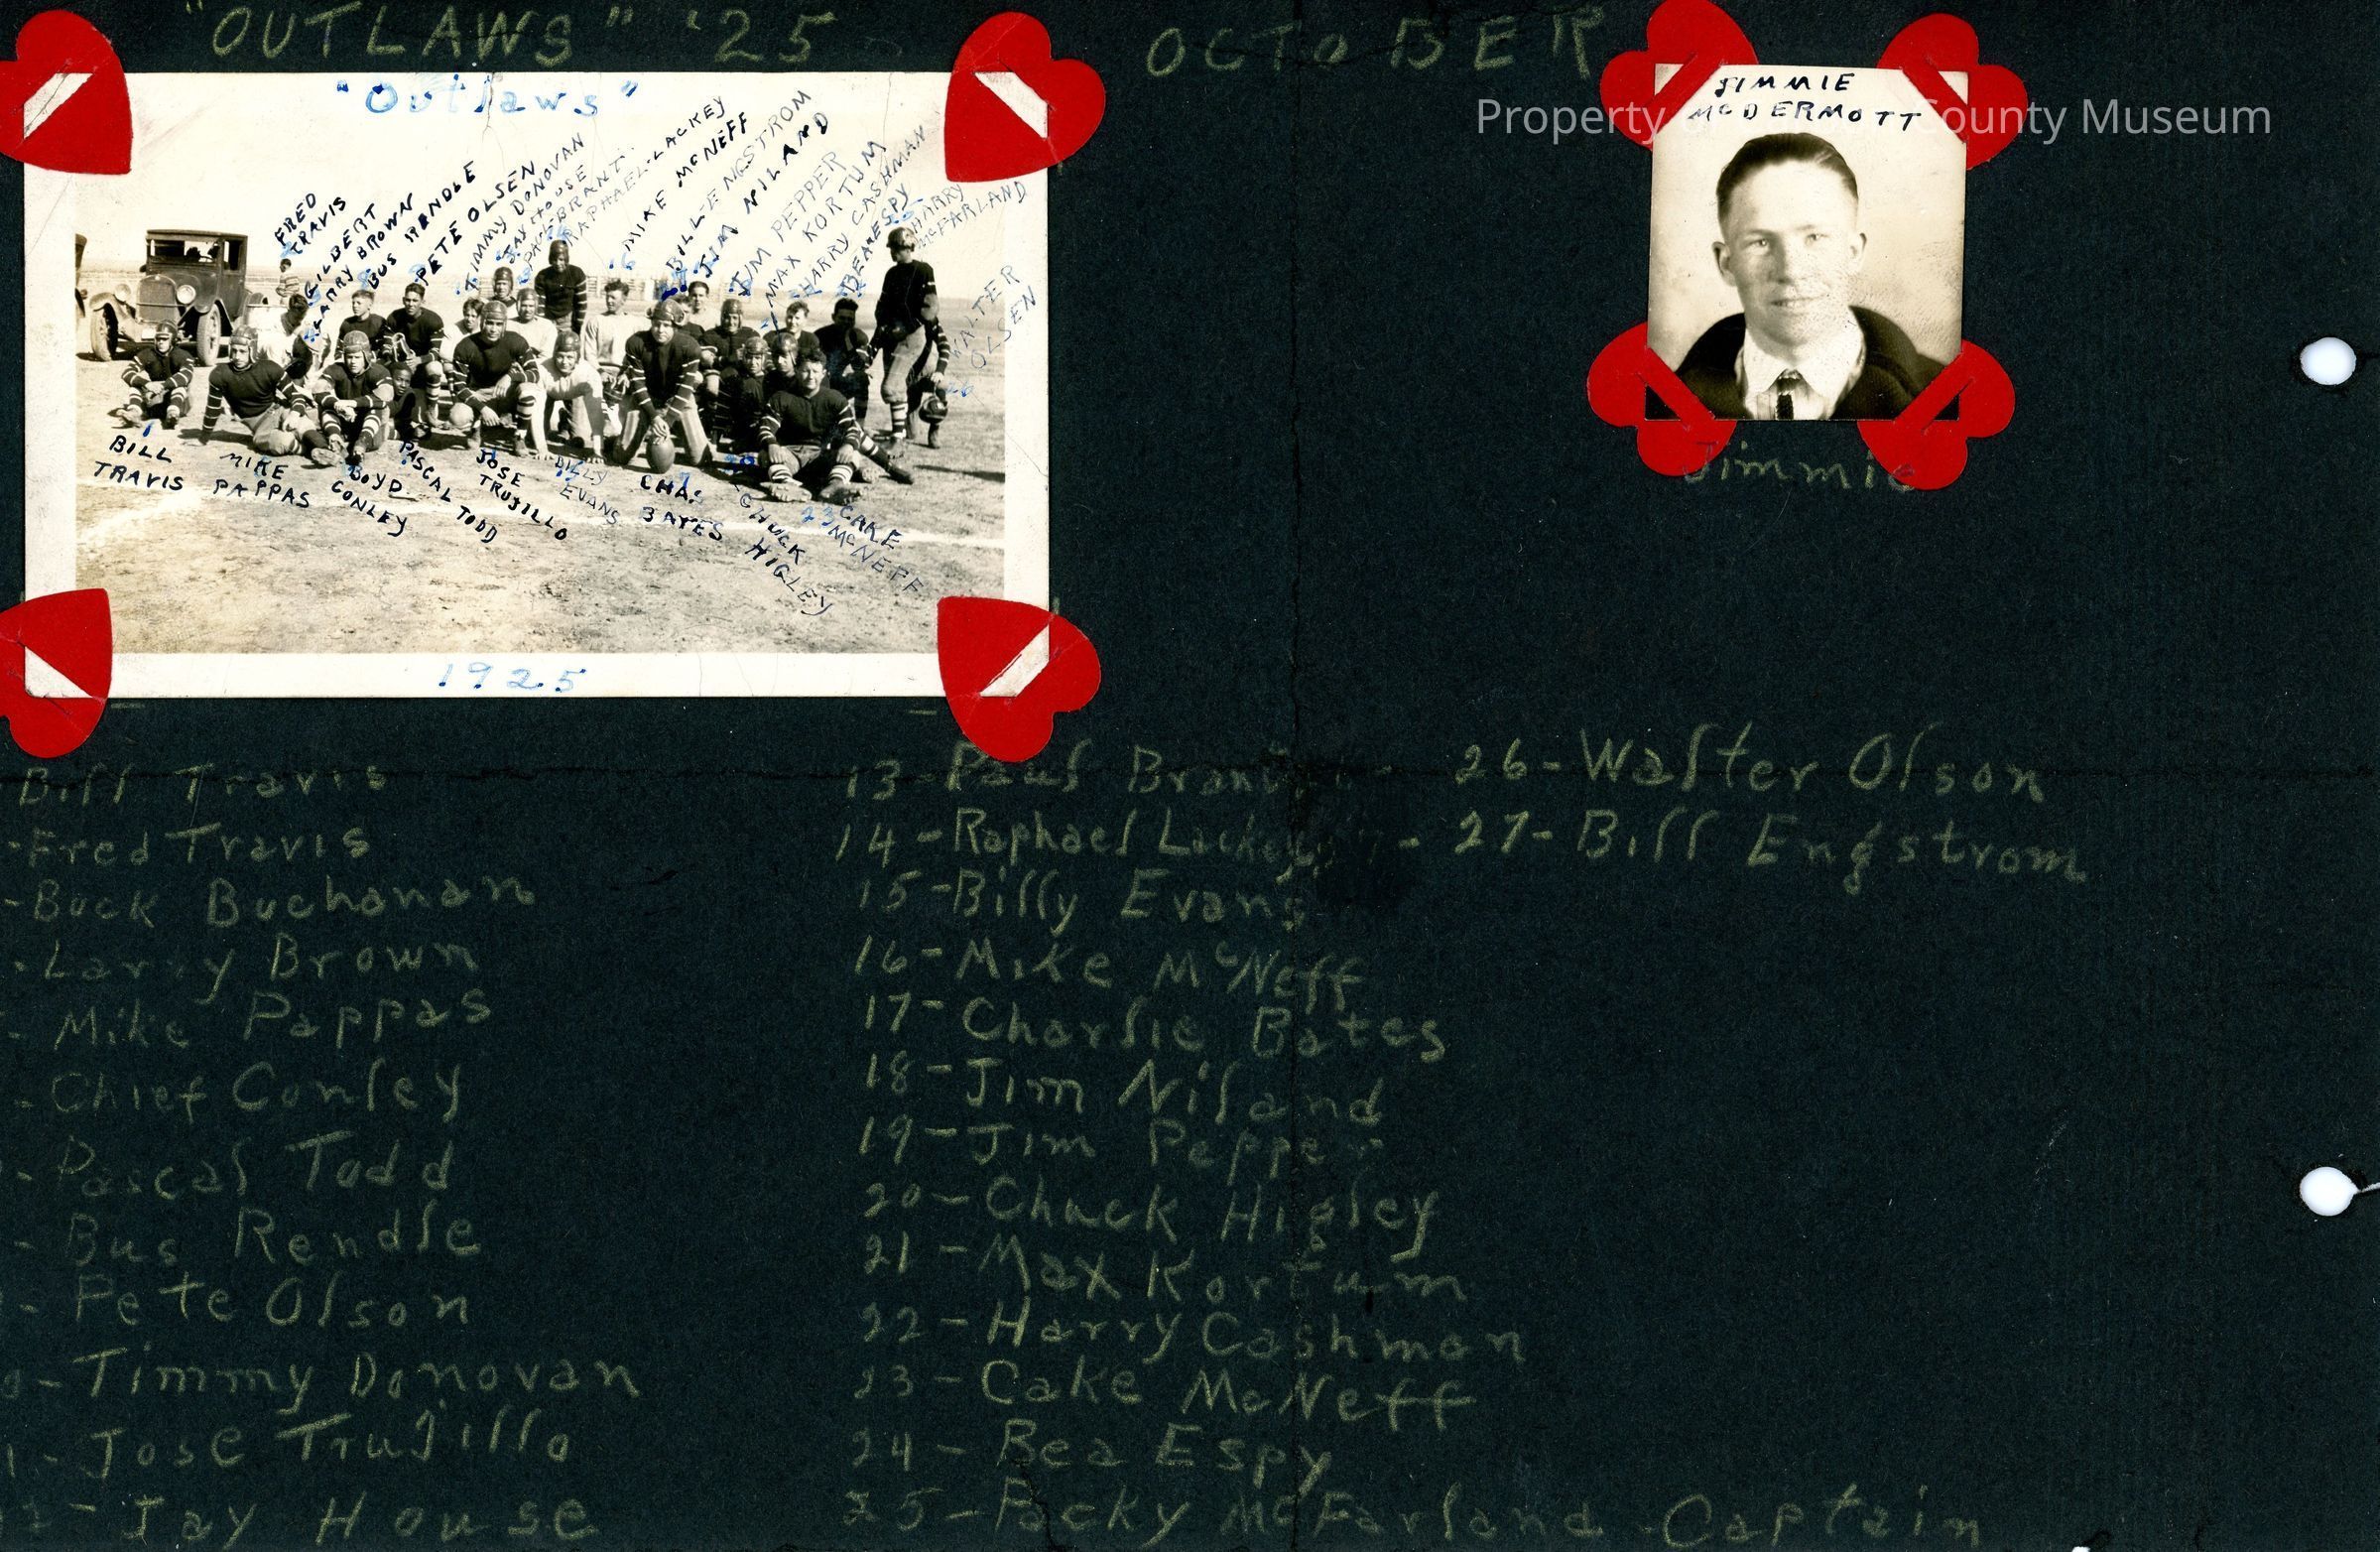 "OUTLAWS" '25
OCTOBER
"Outlaws"
FRED
TRAVIS
GILBERT
LARRY BROWN
BUS RENDLE
PETE OLSEN
TIMMY DONOVAN
JAY HOUSE
PAUL BRANT
RAPHAEL-LACKEY
MIKE McNEFF
BILL ENGSTROM
JIM NILAND
JIM PEPPER
MAX KORTUM
HARRY CASHMAN
BEA ESPY
HARRY
McFARLAND
WALTER
OLSEN
26
16
1
BILL
TRAVIS
MIKE
PAPPAS
BOYD
CONLEY
PASCAL TODD
JOSE
TRUJILLO
BILLY
EVANS
CHAS
BATES
CHUCK
HIGLEY
23 CAKE
McNEFF
1925
JIMMIE
McDERMOTT
Property County Museum
Jimmie
Bill Travis
-Fred Travis
-Buck Buchanan
-Larry Brown
- Mike Pappas
- Chief Conley
- Pascal Todd
- Bus Rendle
- Pete Olson
0- Timmy Donovan
1- Jose Trujillo
2- Jay House
13- Paul Brant
14- Raphael Lackey
15- Billy Evans
16- Mike McNeff
17- Charlie Bates
18- Jim Niland
19- Jim Pepper
20- Chuck Higley
21- Max Kortum
22- Harry Cashman
23- Cake McNeff
24- Bea Espy
25- Packy McFarland - Captain
26- Walter Olson
27- Bill Engstrom